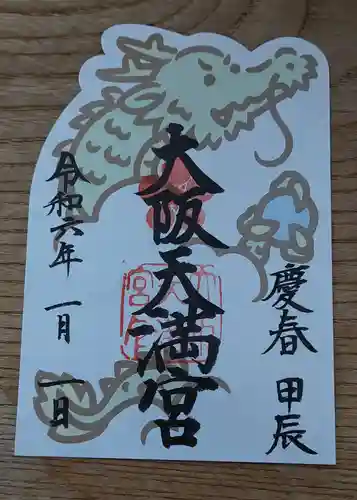 慶春 甲辰
大阪天満宮
令和六年 一月 一日